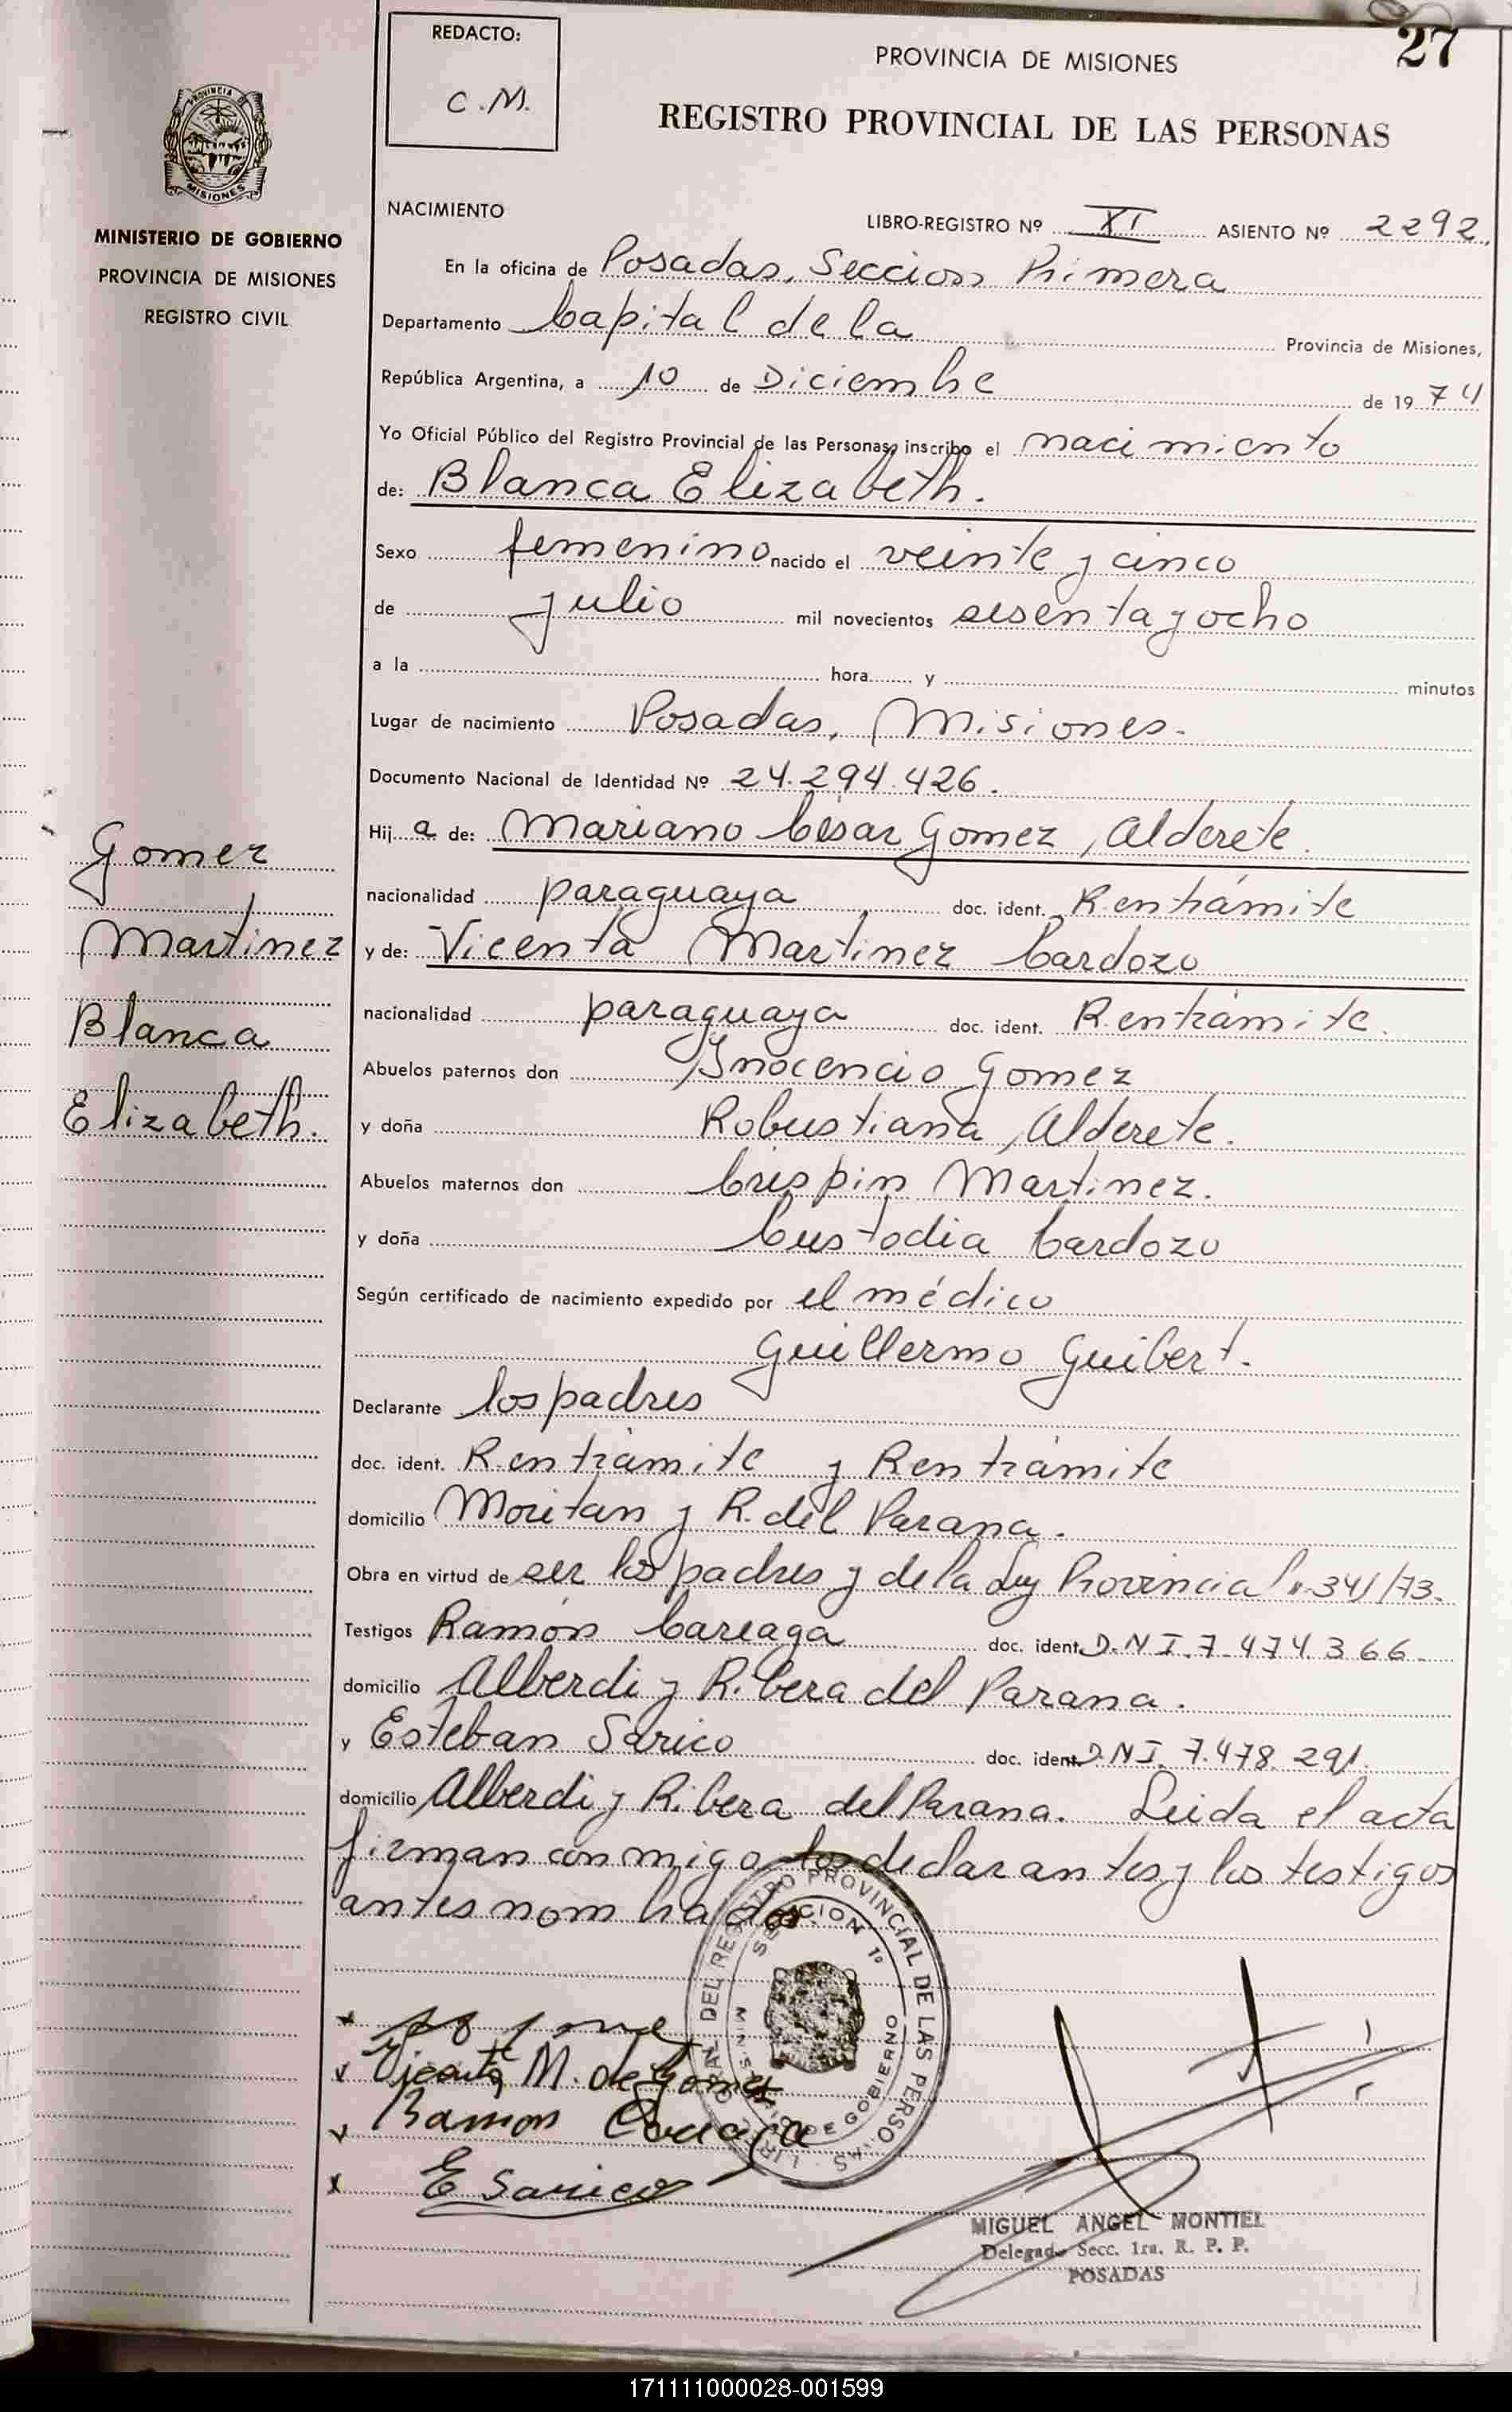 27
REDACTO:
C.M.
PROVINCIA DE MISIONES
REGISTRO PROVINCIAL DE LAS PERSONAS
PROVINCIA
MISIONES
MINISTERIO DE GOBIERNO
PROVINCIA DE MISIONES
REGISTRO CIVIL
NACIMIENTO
LIBRO-REGISTRO Nº XI ASIENTO Nº 2292
En la oficina de Posadas, Seccion Primera
Departamento Capital de la Provincia de Misiones,
República Argentina, a 10 de Diciembre de 1974
Yo Oficial Público del Registro Provincial de las Personas inscribo el nacimiento
de: Blanca Elizabeth.
Sexo femenino nacido el veinte y cinco
de julio mil novecientos sesenta y ocho
a la hora y minutos
Lugar de nacimiento Posadas, Misiones.
Documento Nacional de Identidad Nº 24.294.426.
Hija de: Mariano César Gomez Alderete.
nacionalidad paraguaya doc. ident. R. en trámite
y de: Vicenta Martinez Cardozo
nacionalidad paraguaya doc. ident. R. en trámite.
Abuelos paternos don Inocencio Gomez
y doña Robustiana Alderete.
Abuelos maternos don Crispin Martinez.
y doña Custodia Cardozo
Según certificado de nacimiento expedido por el médico
Guillermo Guibert.
Declarante los padres
doc. ident. R. en trámite y R en trámite
domicilio Moritan y R. del Parana.
Obra en virtud de ser los padres y de la Ley Provincial n. 341/73.
Testigos Ramón Careaga doc. ident. D.N.I. 7.474.366
domicilio Alberdi y Ribera del Parana.
y Esteban Sarico doc. ident. D.N.I. 7.478.291.
domicilio Alberdi y Ribera del Parana. Leida el acta
firman conmigo los declarantes y los testigos
antes nombrados
Gomez
Martinez
Blanca
Elizabeth.
DEL REGISTRO PROVINCIAL DE LAS PERSONAS
SECCION 1º
MINISTERIO DE GOBIERNO
Vicenta M. de Gomez
Ramon Careaga
E Sarico
MIGUEL ANGEL MONTIEL
Delegado Secc. 1ra. R. P. P.
POSADAS
171111000028-001599